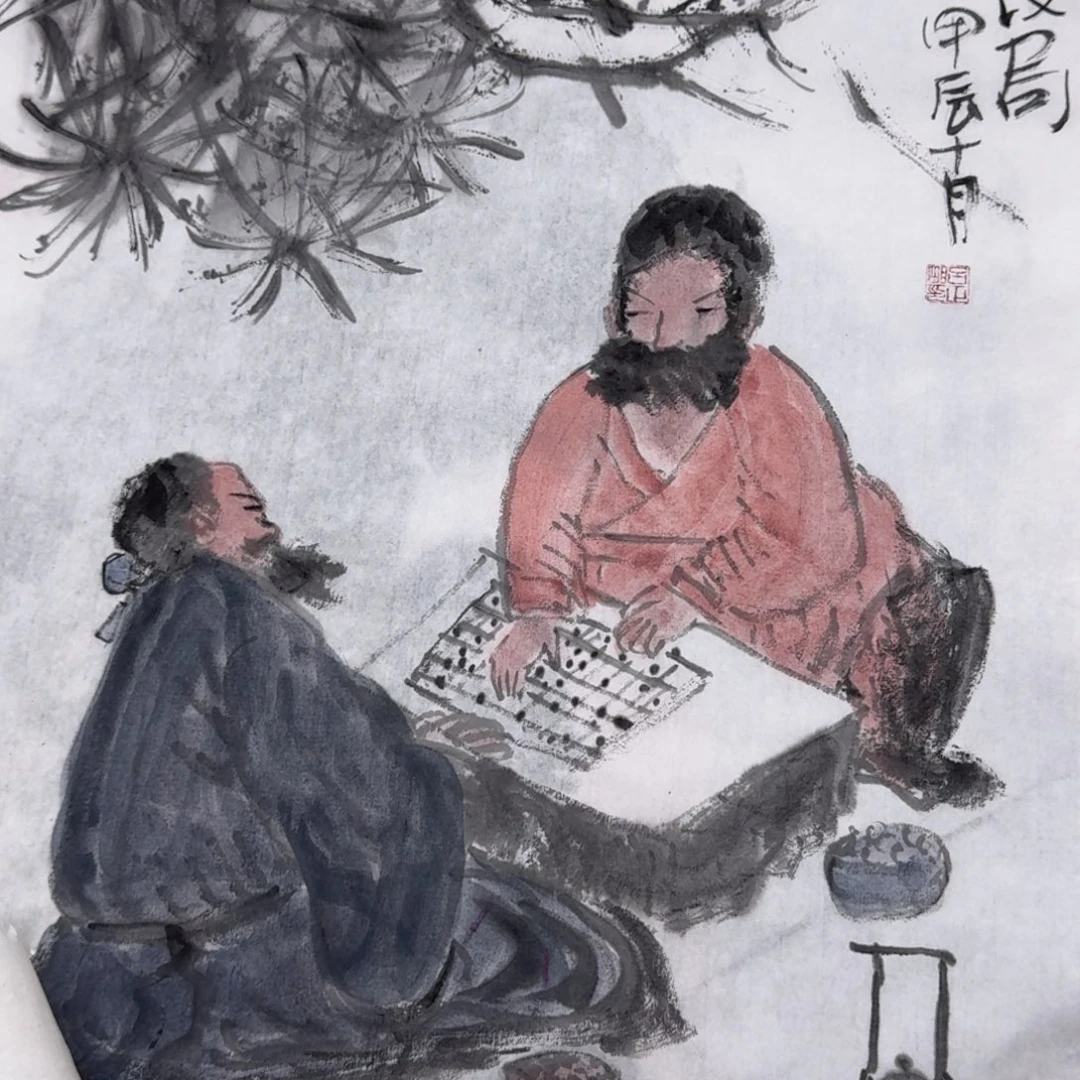 局
甲辰十月